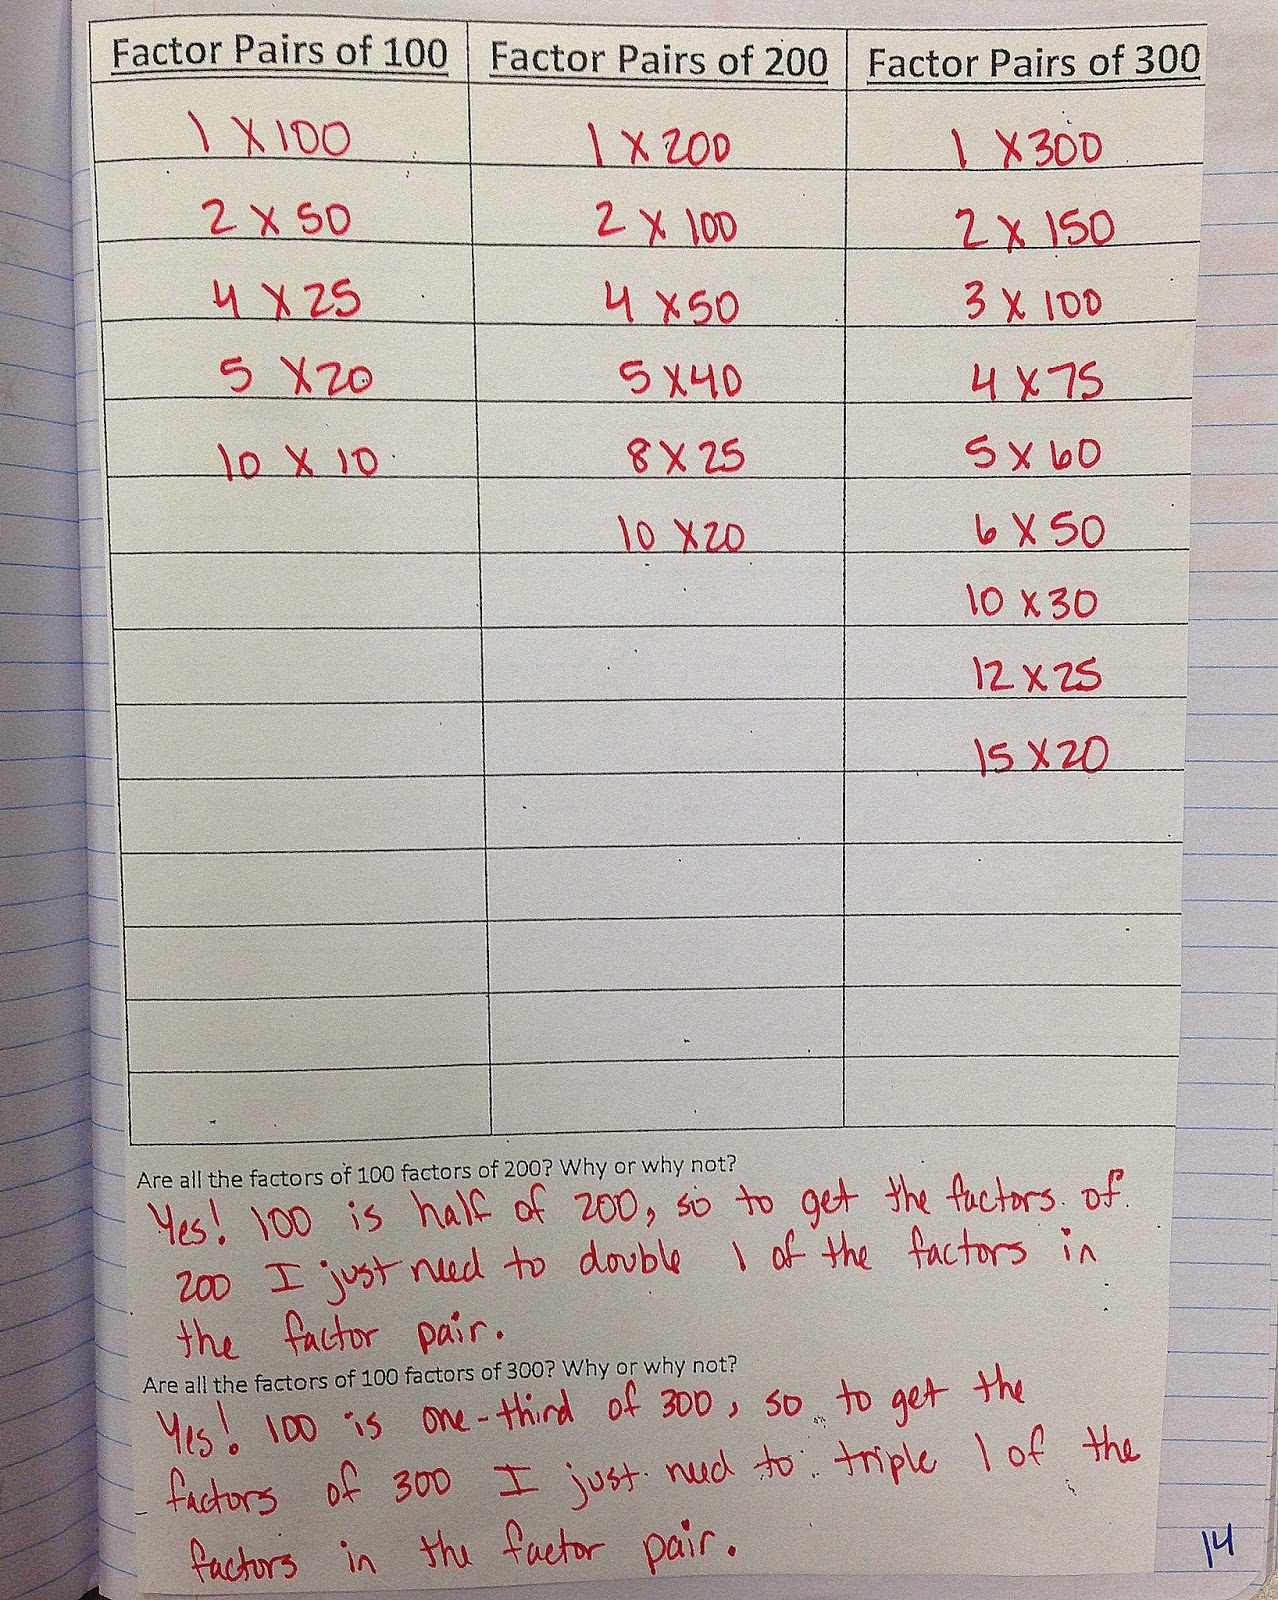 Factor Pairs of 100 Factor Pairs of 200 Factor Pairs of 300
1 X 100 1 X 200 1 X 300
2 X 50 2 X 100 2 X 150
4 X 25 4 X 50 3 X 100
5 X 20 5 X 40 4 X 75
10 X 10 8 X 25 5 X 60
10 X 20 6 X 50
10 X 30
12 X 25
15 X 20
Are all the factors of 100 factors of 200? Why or why not?
Yes! 100 is half of 200, so to get the factors of
200 I just need to double 1 of the factors in
the factor pair.
Are all the factors of 100 factors of 300? Why or why not?
Yes! 100 is one-third of 300, so to get the
factors of 300 I just need to triple 1 of the
factors in the factor pair.
14